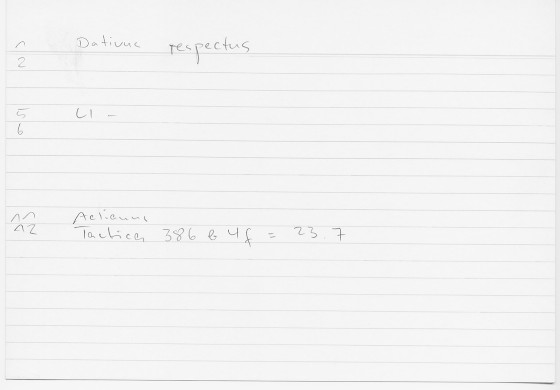 1 Dativus respectus
2
5 LI -
6
11 Aelianus
12 Tactica 386 b 4f = 23.7